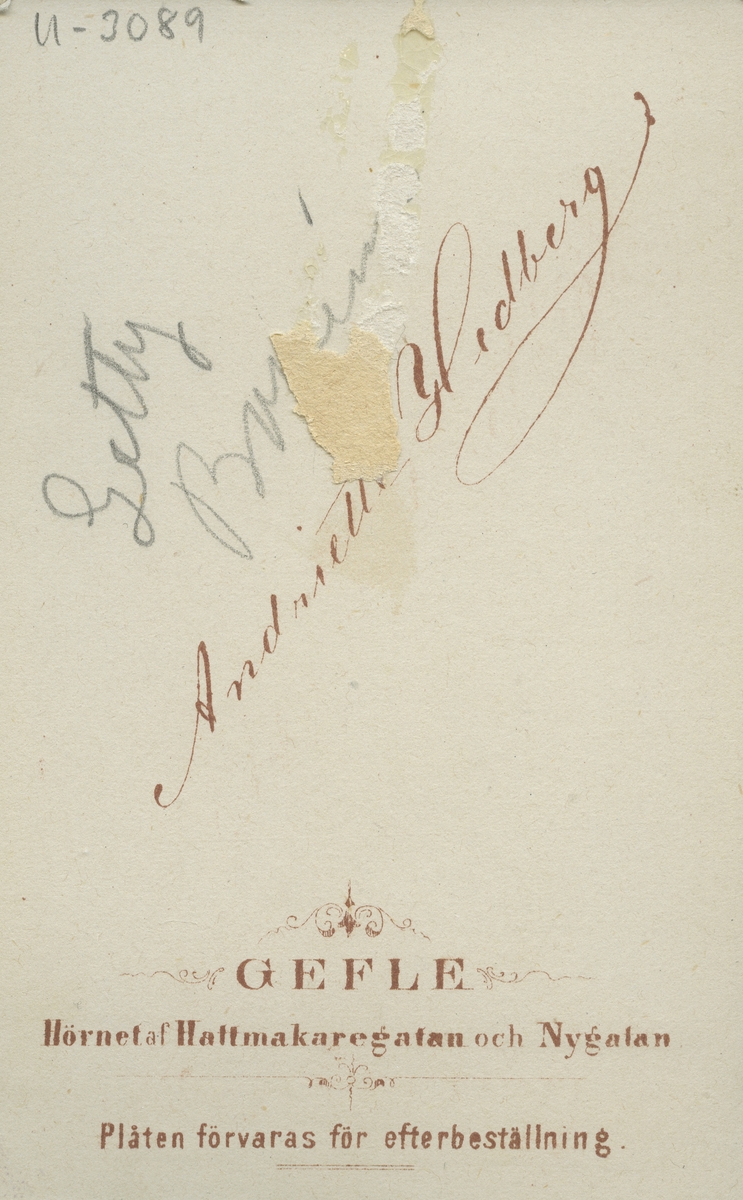 U-3089
Getty
Andriette Hedberg
GEFLE
Hörnet af Hattmakaregatan och Nygatan
Plåten förvaras för efterbeställning.